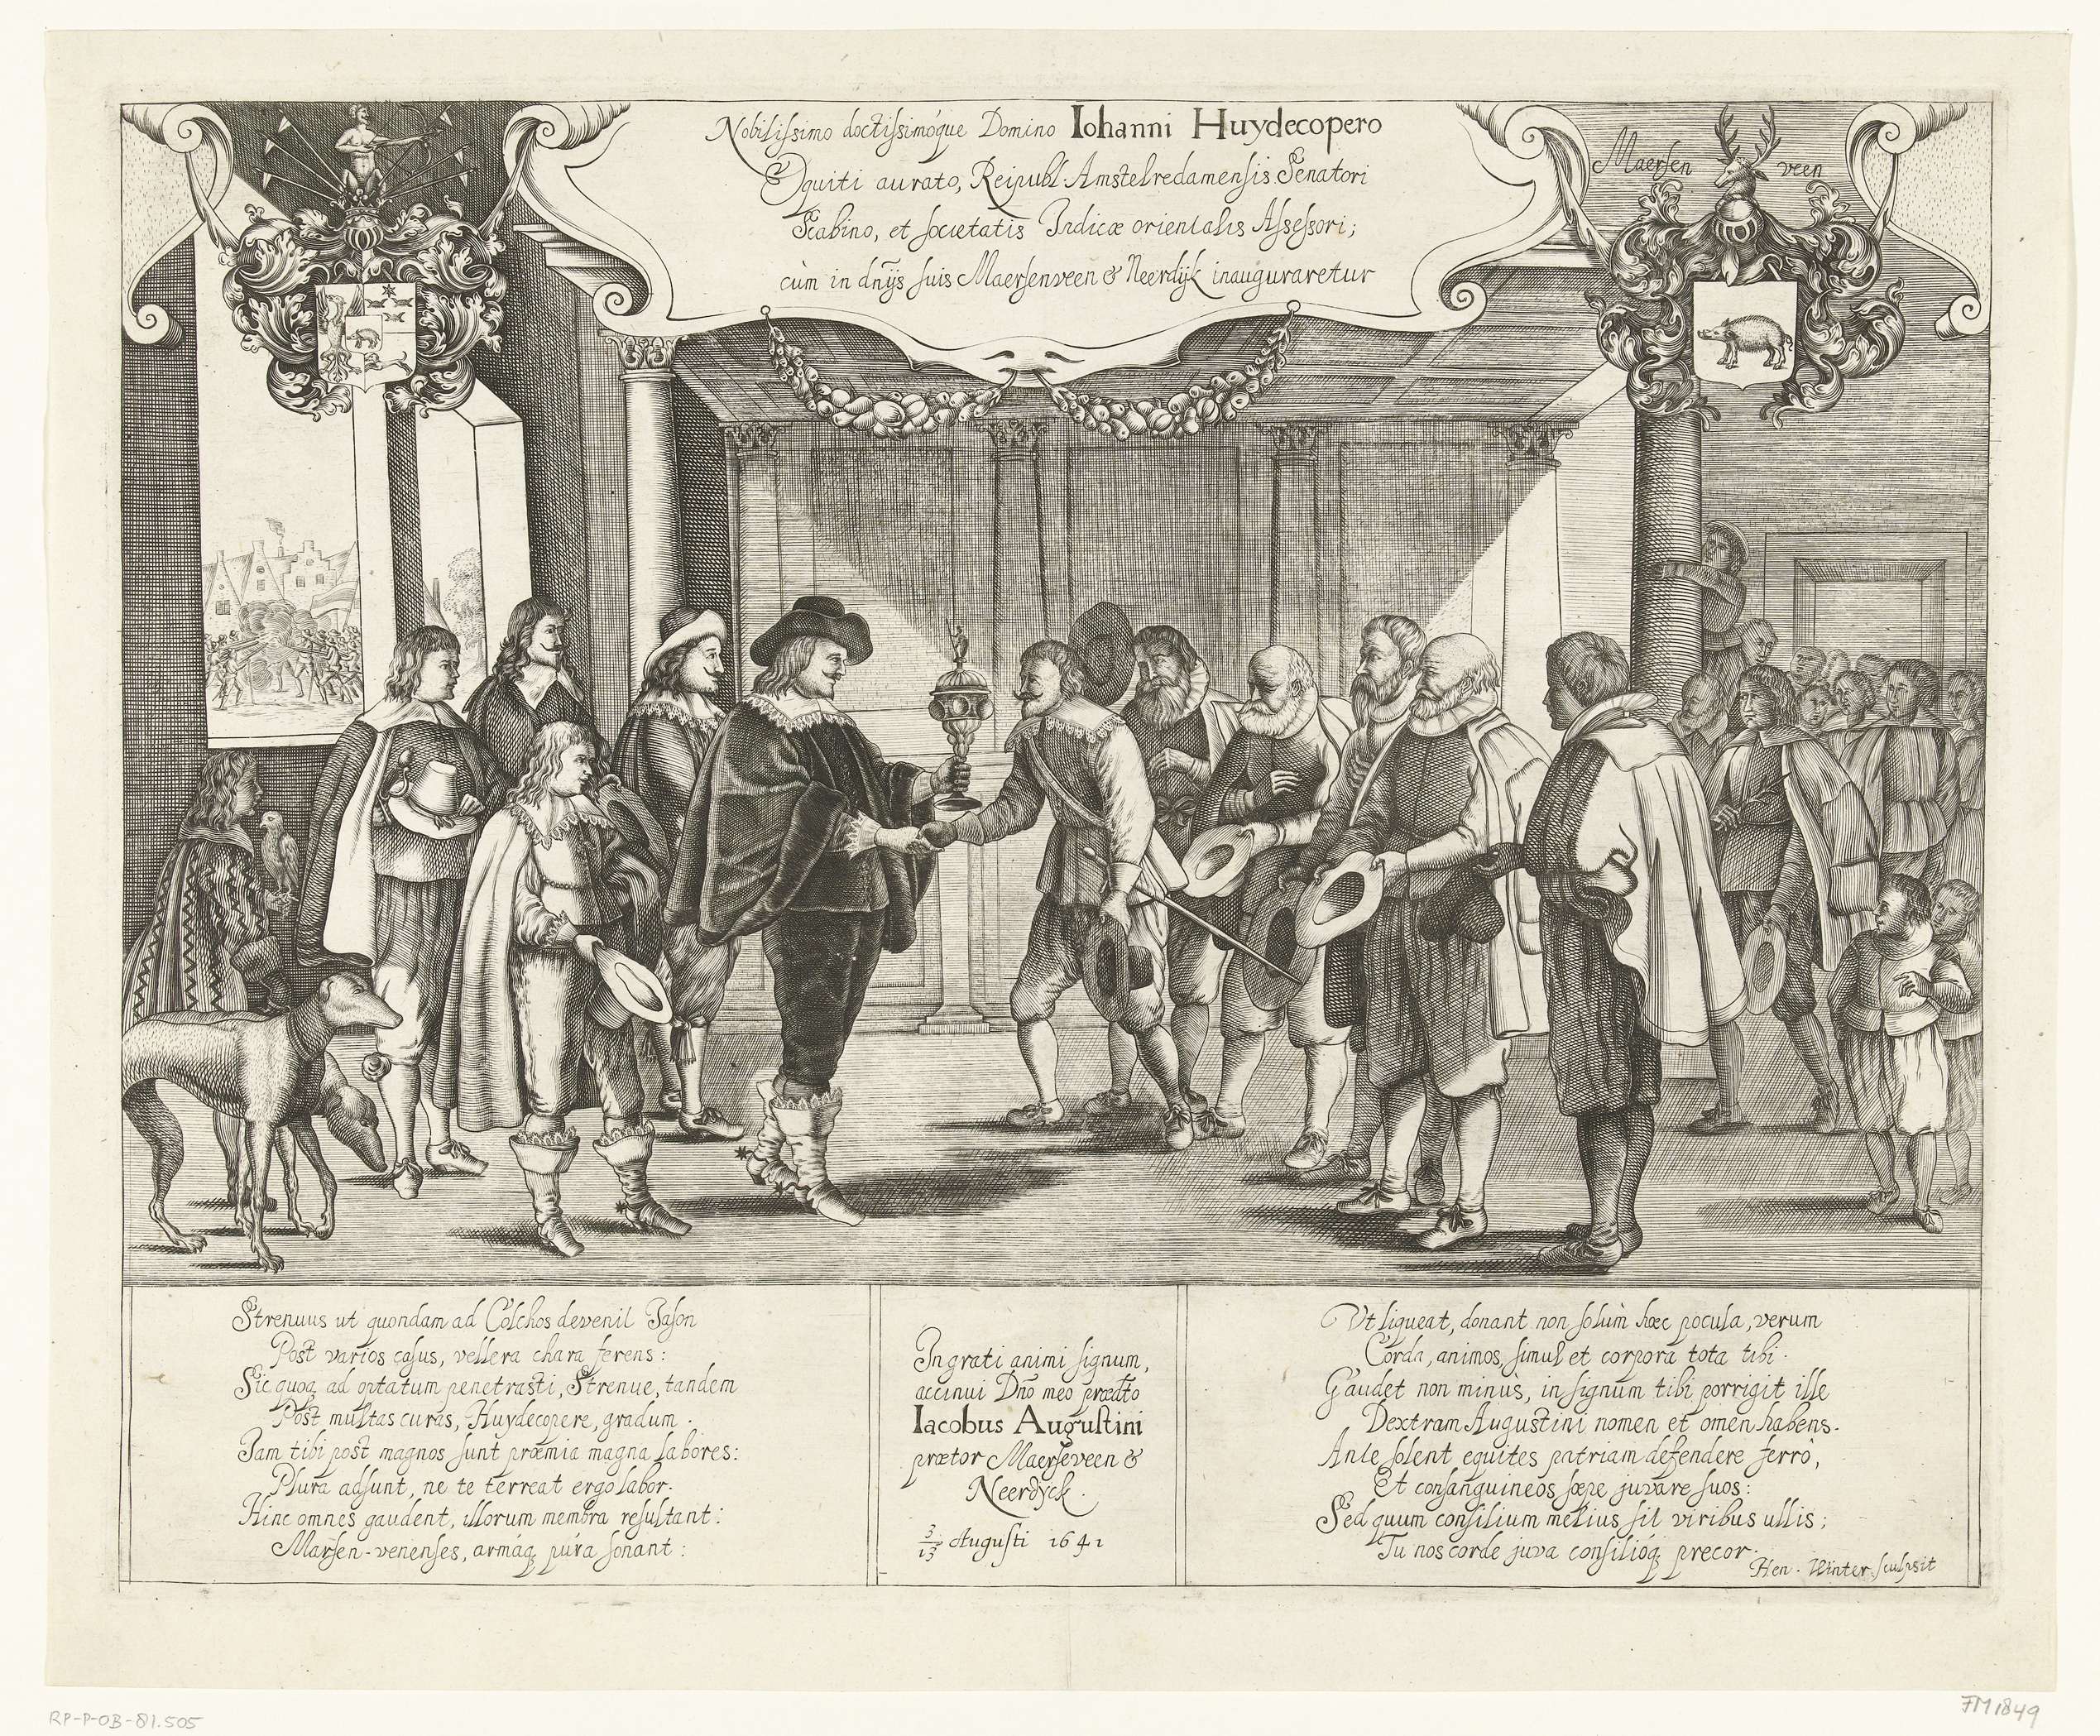 Nobilissimo doctissimóque Domino Iohanni Huydecopero
Equiti aurato, Reipubl. Amstelredamensis Senatori
Scabino, et societatis Indicæ orientalis Assessori;
cùm in dn̄ijs suis Maersenveen & Neerdijk inauguraretur
Maersen veen
Strenuus ut quondam ad Colchos devenit Jason
Post varios casus, vellera chara ferens:
Sic quoq ad optatum penetrasti, Strenue, tandem
Post multas curas, Huydecopere, gradum.
Jam tibi post magnos sunt præmia magna labores:
Plura adsunt, ne te terreat ergo labor.
Hinc omnes gaudent, illorum membra resultant:
Marsen-venenses, armáq púra sonant:
In grati animi signum,
accinui Dn̄o meo prædto
Iacobus Augustini
prætor Maerseveen &
Neerdyck.
3/13 Augusti 1641
Ut liqueat, donant non solùm hæc pocula, verum
Corda, animos, simul et corpora tota tibi.
Gaudet non minùs, in signum tibi porrigit ille
Dextram Augustini nomen et omen habens.
Ante solent equites patriam defendere ferrò,
Et consanguineos sæpe juvare suos:
Sed quum consilium melius sit viribus ullis;
Tu nos corde juva consilióq precor.
Hen. Winter sculpsit
RP-P-OB-81.505
FM 1849